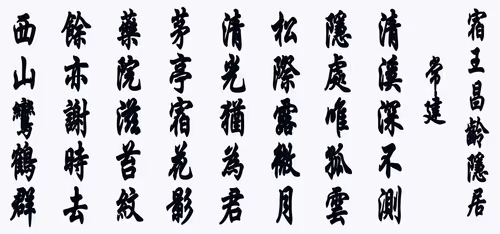 宿王昌齡隱居
常建
清溪深不測
隱處唯孤雲
松際露微月
清光猶為君
茅亭宿花影
藥院滋苔紋
餘亦謝時去
西山鸞鶴群